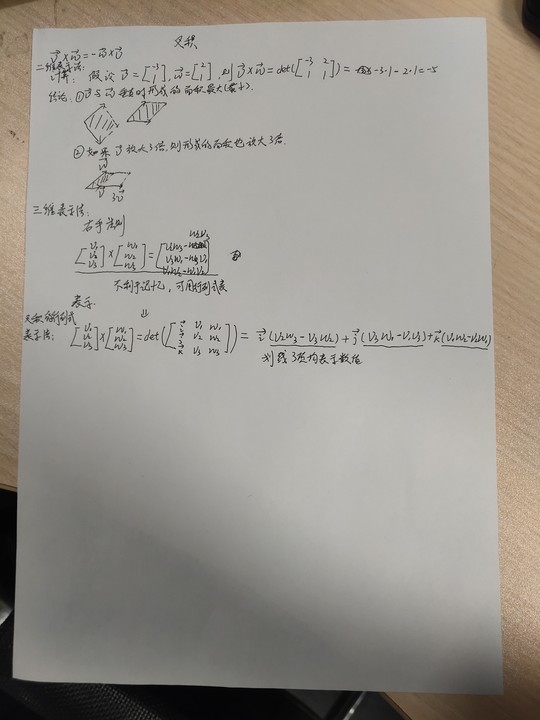 叉积
v⃗×w⃗=-w⃗×v⃗
二维表示法:
计算: 假设 v⃗=[-3 1], w⃗=[2 1], 则 v⃗×w⃗=det([-3 2 1 1])= -3·1-2·1=-5
结论: ①v⃗与w⃗垂直时形成的面积最大(最大).
②如果v⃗放大3倍,则形成的面积也放大3倍.
w⃗
v⃗ 3v⃗
三维表示法:
右手法则
[v1 v2 v3]×[w1 w2 w3]=[v2w3-w2v3 v3w1-w3v1 v1w2-w1v2]
不利于记忆,可用行列式表
表示
⇓
叉积的行列式
表示法: [v1 v2 v3]×[w1 w2 w3]=det([i⃗ v1 w1 j⃗ v2 w2 k⃗ v3 w3])= i⃗(v2w3-v3w2)+j⃗(v3w1-v1w3)+k⃗(v1w2-v2w1)
划线3项均表示数值